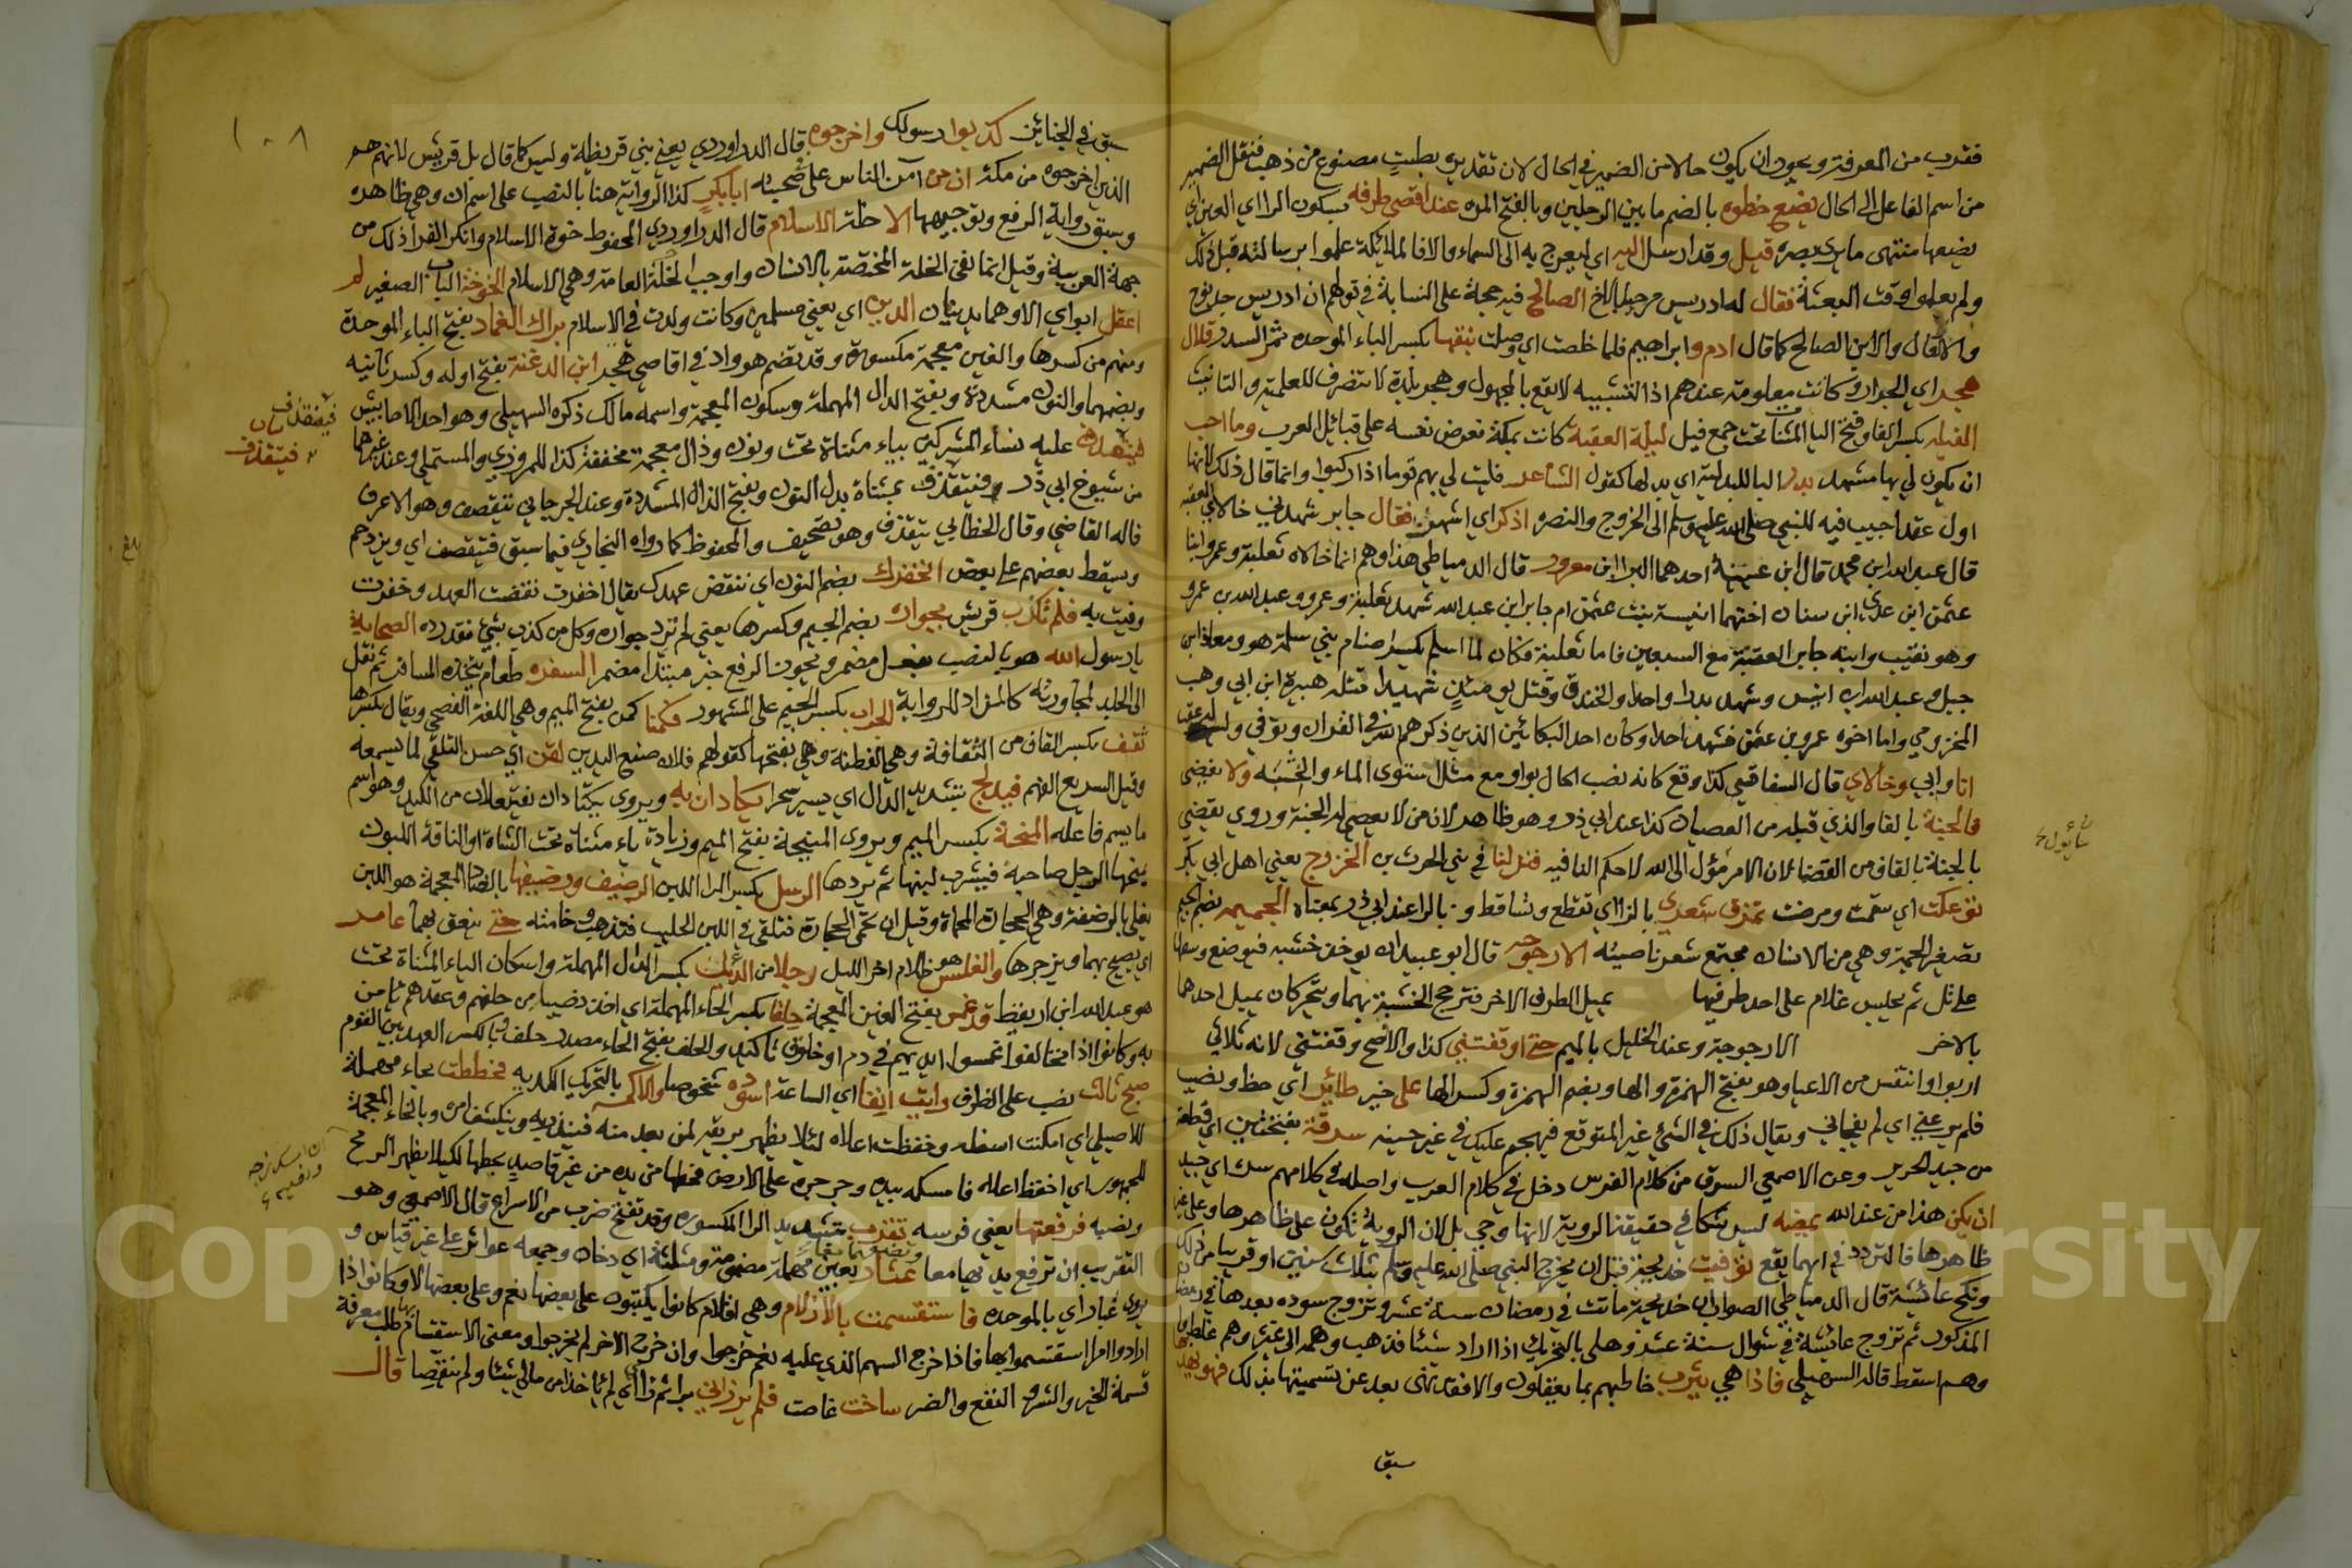 فقرب من المعرفة ويجوز ان يكون حالا من الضمير في الحال لان تقديره بطست مصنوع من ذهب فنقل الضمير
من اسم الفاعل الى الحال يضع خطوه بالضم ما بين الرجلين وبالفتح المره عند اقصى طرفه بسكون الرا اي العين اي
يضعها منتهى ما يرى بصره قيل وقد ارسل اليه اي ليعرج به الى السماء والا فالملائكة علموا برسالته قبل ذلك
ولم يعلموا وقت البعثة فقال له ادريس مرحبا بالاخ الصالح فيه حجة على النسابة في توهم ان ادريس جد نوح
والا لقال والابن الصالح كما قال ادم وابراهيم فلما خلصت اي وصلت نبقها بكسر الباء الموحده ثمر السدر قلال
هجر اي الجرار وكانت معلومة عندهم اذ التشبيه لا يقع بالمجهول وهجر بلدة لا تنصرف للعلمية والتانيث
الفيله بكسر الفا وفتح اليا المثناة تحت جمع فيل ليلة العقبة كانت بمكة تعرض نفسه على قبائل العرب وما احب
ان يكون لي بها مشهد بدر البا للبدلية اي بدلها كقول الشاعر فليت لي بهم قوما اذا ركبوا وانما قال ذلك لانها
اول عقد اجيب فيه للنبي صلى الله عليه وسلم الى الخروج والنصره اذكر اي اشهر فقال جابر شهد بي خالاي العقبة
قال عبد الله ابن محمد قال ابن عيينة احدهما البرا ابن معرور قال الدمياطي هذا وهم انما خالاه ثعلبة وعمرو ابنا
عثمة ابن عدي ابن سنان اختهما انيسة بنت عثمة ام جابر ابن عبد الله شهد ثعلبة وعمرو وعبد الله بن عمرو
وهو نقيب وابنه جابر العقبة مع السبعين فاما ثعلبة فكان لما اسلم يكسر اصنام بني سلمة هو ومعاذ ابن
جبل وعبد الله ابن انيس وشهد بدرا واحدا والخندق وقتل يومئذ شهيدا قتله هبيرة ابن ابي وهب
المخزومي واما اخوه عمرو بن عثمة فشهد احدا وكان احد البكائين الذين ذكرهم الله في القران وتوفي وليس له عقب
انا وابي وخالاي قال السفاقسي كذا وقع كانه نصب الحال بواو مع مثل استوى الماء والخشبه ولا يقضي
فالجنة بالفا والذي قبله من العصيان كذا عند ابي ذر وهو ظاهر لان من لا يعصي له الجنة وروي يقضي
بالجنة بالقاف من القضا لان الامر مؤل الى الله لا حكم لنا فيه فنزلنا في بني الحرث بن الخزرج يعني اهل ابي بكر
توعكت اي سقمت ومرضت تمزق شعري بالزاي تقطع وتساقط و بالرا عند ابي ذر بمعناه الجميمه بضم الجيم
تصغير الجمة وهي من الانسان مجتمع شعر ناصيته الارجوحه قال ابو عبيد ان يوخذ خشبه فيوضع وسطها
على تل ثم يجلس غلام على احد طرفيها يميل الطرف الاخر فترجح الخشبة بهما ويتحركان يميل احدهما
بالاخر الارجوجة وعند الخليل بالميم حتى اوقفتني كذا والافصح وقفتني لانه ثلاثي
اربوا واتنفس من الاعيا وهو بفتح الهمزة والها وبضم الهمزة وكسر الها على خير طائر اي حظ ونصيب
فلم يرعني اي لم يفجاني ويقال ذلك في الشئ غير المتوقع فيهجم عليك في غير حينه سرقة بفتحتين اي قطعة
من جيد الحرير وعن الاصمعي السرق من كلام الفرس دخل في كلام العرب واصله في كلامهم سره اي جيد
ان يكن هذا من عند الله يمضه ليس شكا في حقيقة الروية لانها وحي بل لان الروية تكون على ظاهرها وعلى غير
ظاهرها فالتردد في ايهما يقع توفيت خديجة قبل ان يخرج النبي صلى الله عليه وسلم بثلاث سنين او قريبا من ذلك
ونكح عائشة قال الدمياطي الصواب ان خديجة ماتت في رمضان سنة عشر وتزوج سوده بعدها في رمضان
المذكور ثم تزوج عائشة في شوال سنة عشر وهلي بالتحريك اذا اراد شيئا فذهب وهمه الى غيره وهم غلط
وهم اسقط قاله السهيلي فاذا هي يثرب خاطبهم بما يعقلون والا فقد نهى بعد عن تسميتها بذلك فهو يهد
سبق
١٠٨
سبق في الجنائز كذبوا رسولك واخرجوه قال الداوردي يعني بني قريظة وليس كما قال بل قريش لانهم هم
الذين اخرجوه من مكة ان من امن الناس على صحبته ابا بكر كذا الرواية هنا بالنصب على اسم ان وهي ظاهره
وسبق رواية الرفع وتوجيهها الا خلة الاسلام قال الداوردي المحفوظ خوة الاسلام وانكر القزاز ذلك من
جهة العربية وقيل انما نفى الخلة المختصة بالانسان واوجب الخلة العامة وهي الاسلام الخوخة الباب الصغير لم
اعقل ابواي الا وهما يدينان الدين اي يعني مسلمين وكانت ولدت في الاسلام برك الغماد بفتح الباء الموحدة
ومنهم من كسرها والغين معجمة مكسورة وقد تضم هو واد في اقاصي هجر ابن الدغنة بفتح اوله وكسر ثانيه
وبضمهما والنون مشددة وبفتح الدال المهملة وسكون المعجمة واسمه مالك ذكره السهيلي وهو احد الاحابيش
عليه نساء المشركين بياء مثناة تحت ونون وذال معجمة مخففة كذا للمروزي والمستملي وعند غيرهما
من شيوخ ابي ذر فيتقذف بمثناة بدل النون وبفتح الذال المشددة وعند الجرجاني فيتقصف وهو الاعرف
قاله القاضي وقال الخطابي يتقذف وهو تصحيف والمحفوظ كما رواه البخاري فيما سبق فيتقصف اي ويزدحم
ويسقط بعضهم على بعض نخفرك بضم النون اي ننقض عهدك يقال اخفرت نقضت العهد وخفرت
وفيت به فلم تكذب قريش بجوار بضم الجيم وكسرها يعني لم ترد جواره وكل من كذب بشئ فقد رده الصحابة
يا رسول الله هو بالنصب بفعل مضمر ويجوز الرفع خبر مبتدا مضمر السفره طعام يتخذه المسافر ثم نقل
الى الجلد لمجاورته كالمزاد للرواية الجراب بكسر الجيم على المشهور فكمنا كمن بفتح الميم وهي اللغة الفصحى ويقال بكسرها
ثقف بكسر القاف من الثقافة وهي الفطنة وهي بفتحها كقولهم فلان صنع اليدين لقن اي حسن التلقي لما يسمعه
وقيل السريع الفهم فيدلج بتشديد الدال اي يسير سحرا يكادان به ويروى يكتادان يفتعلان من الكيد وهو اسم
ما يسم فاعله المنحة بكسر الميم ويروى المنيحة بفتح الميم وزيادة ياء مثناة تحت الشاة او الناقة اللبون
يمنحها الرجل صاحبه فيشرب لبنها ثم يردها الرسل بكسر الرا اللبن الرضيف ورضيفها بالضاد المعجمة هو اللبن
يغلى بالرضفة وهي الحجارة المحماة وقيل ان تحمى الحجارة فتلقى في اللبن الحليب فتذهب وخامته حتى ينعق بهما عامر
اي يصيح بهما ويزجرها والغلس هو ظلام اخر الليل رجلا من الديل بكسر الدال المهملة واسكان الياء المثناة تحت
هو عبد الله ابن اريقط قد غمس بفتح الغين المعجمة حلفا بكسر الحاء المهملة اي اخذ نصيبا من حلفهم وعقدهم يامن
به وكانوا اذا تحالفوا غمسوا ايديهم في دم او خلوق تاكيدا والحلف بفتح الحاء مصدر حلف وبالكسر العهد بين القوم
صبح ثالث نصب على الظرف رايت انفا اي الساعة اسوده شخوصا والاكمه بالتحريك الكديه فخططت بحاء مهملة
للاصيلي اي امكنت اسفله وخفظت اعلاه لئلا يظهر بريقه لمن بعد منه فينذر به وينكشف امره وبالخاء المعجمة
للجمهور اي اخفظ اعلاه فامسكه بيده وجر زجه على الارض فخطها من يده من غير قاصد بخطها لكيلا يظهر الرمح
ونصبه فرفعتها يعني فرسه تقرب بتشديد الرا المكسوره وقد تفتح ضرب من الاسراع قال الاصمعي وهو
التقريب ان ترفع يديها معا وتضعهما معا عثان بعين مهملة مضمومة ومثلثة اي دخان وجمعه عواثن على غير قياس و
يروى غبار اي بالموحده فاستقسمت بالازلام وهي اقلام كانوا يكتبون على بعضها نعم وعلى بعضها لا وكانوا اذا
ارادوا امرا استقسموا بها فاذا خرج السهم الذي عليه نعم خرجوا وان خرج الاخر لم يخرجوا ومعنى الاستقسام بها طلب معرفة
قسمة الخير والشر والنفع والضر ساخت غاصت فلم يرزاني برا ثم زا اي لم ياخذا من مالي شيئا ولم ينقصا قال